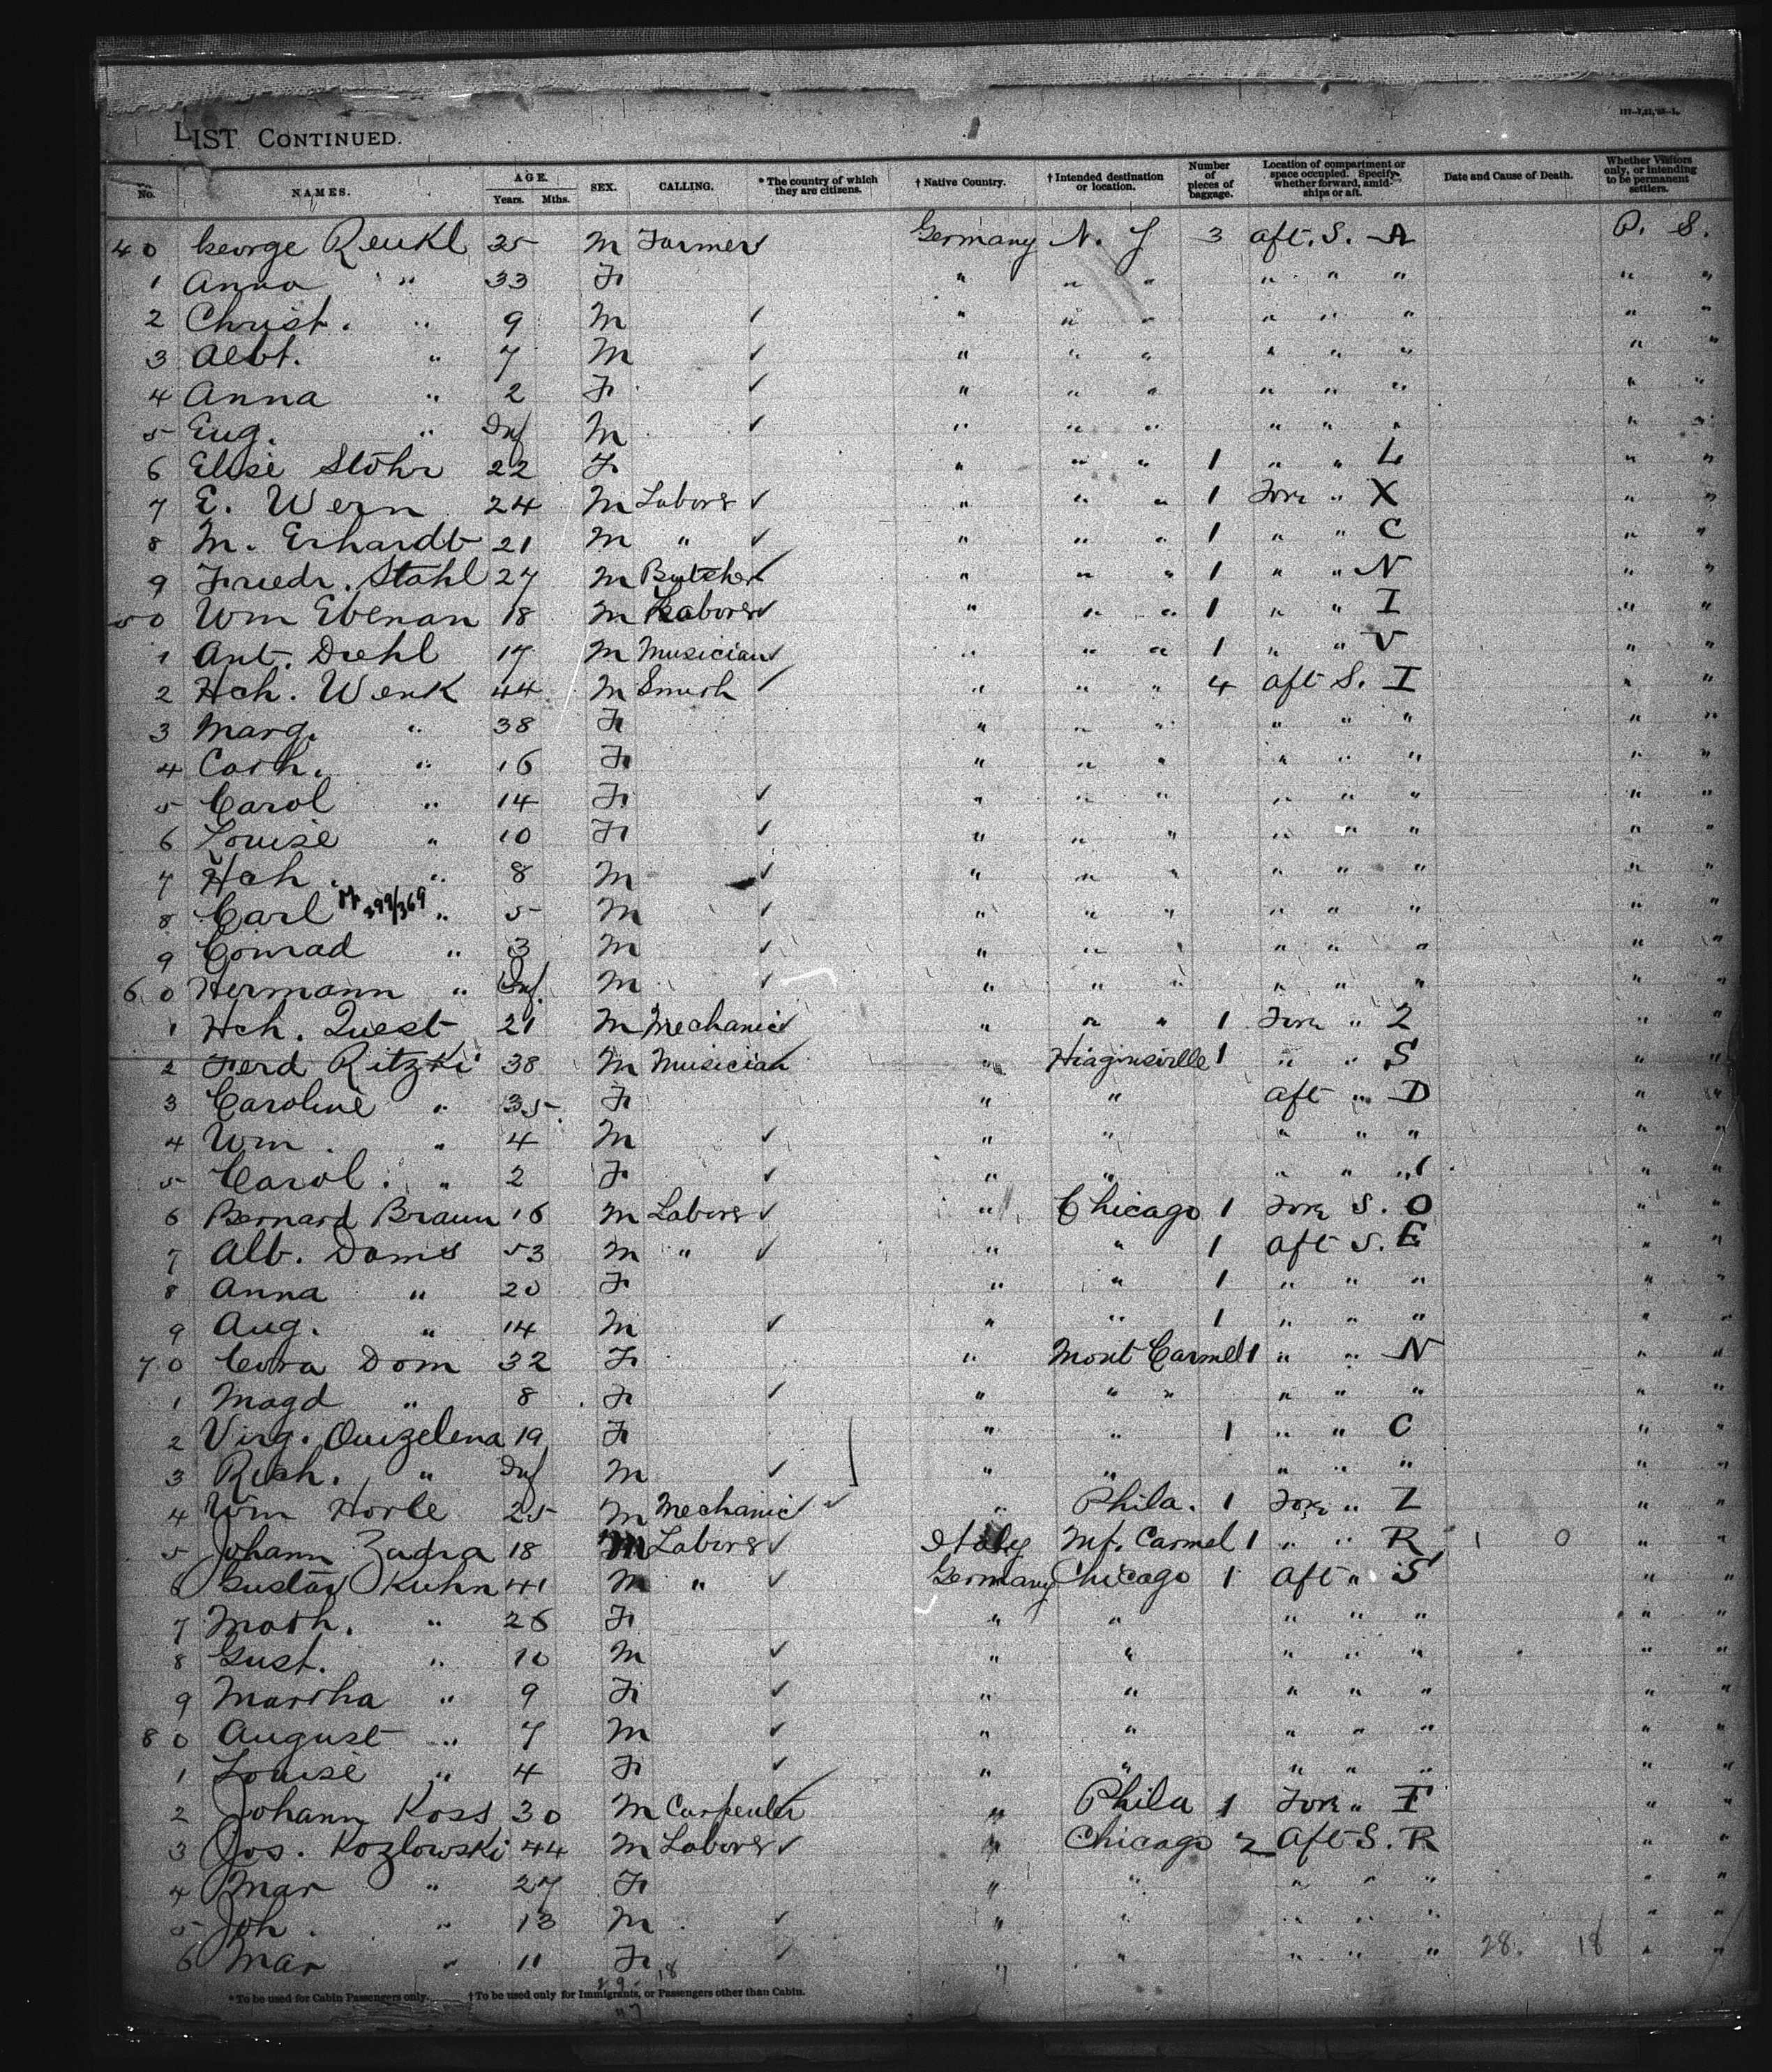 LIST CONTINUED.
No. NAMES. AGE. Years. Mths. SEX. CALLING. * The country of which they are citizens. † Native Country. † Intended destination or location. Number of pieces of baggage. Location of compartment or space occupied. Specify whether forward, amidships or aft. Date and Cause of Death. Whether Visitors only, or intending to be permanent settlers.
40 George Reukl 25 M Farmer ✓ Germany N. Y 3 aft. S. A P. S.
1 Anna " 33 F " " " " " " " "
2 Christ. " 9 M ✓ " " " " " " " "
3 Albt. " 7 M ✓ " " " " " " " "
4 Anna " 2 F ✓ " " " " " " " "
5 Eug. " Inf M ✓ " " " " " " " "
6 Elise Stöhr 22 F " " " 1 " " L " "
7 E. Wern 24 M Laborer ✓ " " " 1 Fore " X " "
8 M. Erhardt 21 M " ✓ " " " 1 " " C " "
9 Friedr. Stahl 27 M Butcher ✓ " " " 1 " " N " "
50 Wm Ebenan 18 M Laborer ✓ " " " 1 " " I " "
1 Ant. Diehl 17 M Musician ✓ " " " 1 " " V " "
2 Hch. Wenk 44 M Smith ✓ " " " 4 aft S. I " "
3 Marg. " 38 F " " " " " " " "
4 Cath. " 16 F " " " " " " " "
5 Carol " 14 F ✓ " " " " " " " "
6 Louise " 10 F ✓ " " " " " " " "
7 Hch. " 8 M ✓ " " " " " " " "
8 Carl 399/369 " 5 M ✓ " " " " " " " "
9 Conrad " 3 M ✓ " " " " " " " "
60 Hermann " Inf. M ✓ " " " " " " " "
1 Hch. Quest 21 M Mechanic ✓ " " " 1 Fore " Z " "
2 Ferd Ritzki 38 M Musician ✓ " Higginsville 1 " " S " "
3 Caroline " 35 F " " aft " D " "
4 Wm. " 4 M ✓ " " " " " " "
5 Carol. " 2 F ✓ " " " " " " "
6 Bernard Braun 16 M Laborer ✓ " Chicago 1 Fore S. O " "
7 Alb. Doms 53 M " ✓ " " 1 aft S. E " "
8 Anna " 20 F " " 1 " " " " "
9 Aug. " 14 M ✓ " " 1 " " " " "
70 Cora Dom 32 F " Mont Carmel 1 " " N " "
1 Magd " 8 F ✓ " " " " " " " "
2 Virg. Ouizelena 19 F " " 1 " " C " "
3 Rich. " Inf M ✓ " " " " " " "
4 Wm Horle 25 M Mechanic ✓ ✓ " Phila. 1 Fore " Z " "
5 Johann Zadra 18 M Laborer ✓ Italy Mt. Carmel 1 " " R 1 0 " "
6 Gustav Kuhn 41 M " ✓ Germany Chicago 1 aft " S " "
7 Math. " 26 F " " " " " " "
8 Gust. " 10 M ✓ " " " " " " "
9 Martha " 9 F ✓ " " " " " " "
80 August " 7 M ✓ " " " " " " "
1 Louise " 4 F ✓ " " " " " " "
2 Johann Koss 30 M Carpenter ✓ " Phila 1 Fore " F " "
3 Jos. Kozlowski 44 M Laborer ✓ " Chicago 2 aft S. R " "
4 Mar " 27 F " " " " " " "
5 Joh. " 13 M ✓ " " " " " " "
6 Mar " 11 F ✓ " " " " " 28. 18 " "
29 18
* To be used for Cabin Passengers only. † To be used only for Immigrants, or Passengers other than Cabin.